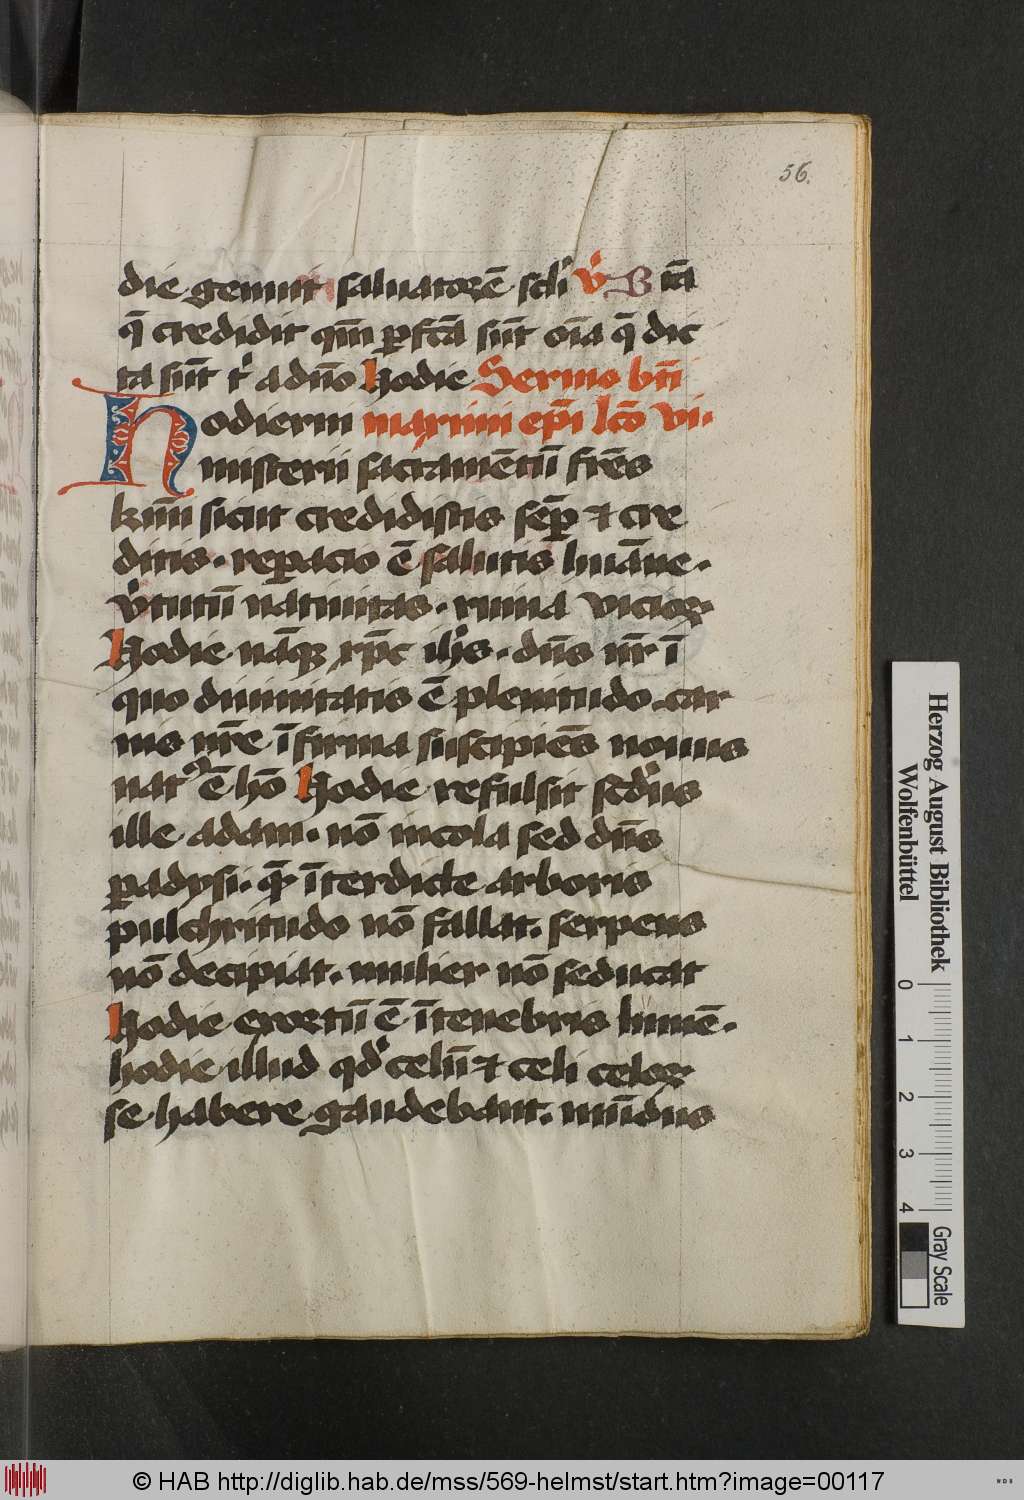 56.
die genuit saluatorē scłi v̓ Beata
q̄ credidit qm̄ ꝑfcā sūt oīa q̄ dic
ta sūt t̓ a dn̄o hodie Sermo bt̄i
hodierni maximi ep̄i lc̄o vi.
misterii sacramētū frēs
kmī sicut credidistis sēꝑ ⁊ cre
ditis. reꝑacio ē salutis huāne.
v̓tutū natiuitas. ruina vicioꝝ
Hodie nāqꝫ xp̄c ih̓s. dn̄s nr̄ ī
quo diuinitatis ē plenitudo. car
nis nr̄e īfirma suscipiēs nouus
natꝰ ē hō Hodie refulsit scd̓us
ille adam. nō incola sed dn̄s
ꝑadysi. q̄ īterdicte arboris
pulchritudo nō fallat. serpens
nō decipiat. mulier nō seducat
Hodie exortū ē ītenebris lumē.
hodie illud qd̓ celū ⁊ celi celoꝝ
se habere gaudebant. mūdus
Herzog August Bibliothek
Wolfenbüttel
0 1 2 3 4
Gray Scale
© HAB http://diglib.hab.de/mss/569-helmst/start.htm?image=00117